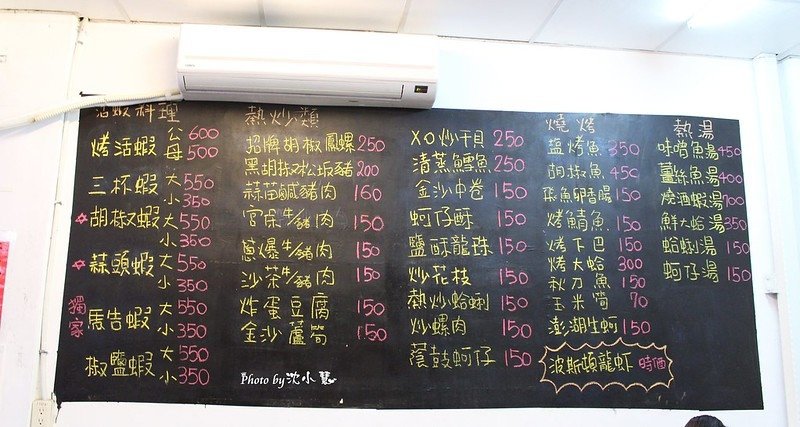 活蝦料理
烤活蝦 公 600
母 500
三杯蝦 大 550
小 350
✡胡椒蝦 大 550
小 350
✡蒜頭蝦 大 550
小 350
獨家 馬告蝦 大 550
小 350
椒鹽蝦 大 550
小 350
熱炒類
招牌胡椒鳳螺 250
黑胡椒松坂豬 200
蒜苗鹹豬肉 160
宮保牛/豬肉 150
蔥爆牛/豬肉 150
沙茶牛/豬肉 150
炸蛋豆腐 150
金沙蘆筍 150
XO炒干貝 250
清蒸鱈魚 250
金沙中卷 150
蚵仔酥 150
鹽酥龍珠 150
炒花枝 150
熱炒蛤蜊 150
炒螺肉 150
蔭鼓蚵仔 150
燒烤
鹽烤魚 350
胡椒魚 450
飛魚卵香腸 150
烤鯖魚 150
烤下巴 150
烤大蛤 300
秋刀魚 150
玉米筍 70
澎湖生蚵 150
波斯頓龍虾 時價
熱湯
味噌魚湯 450
薑絲魚湯 400
燒酒蝦湯 700
鮮大蛤湯 350
蛤蜊湯 150
蚵仔湯 150
Photo by 沈小慧